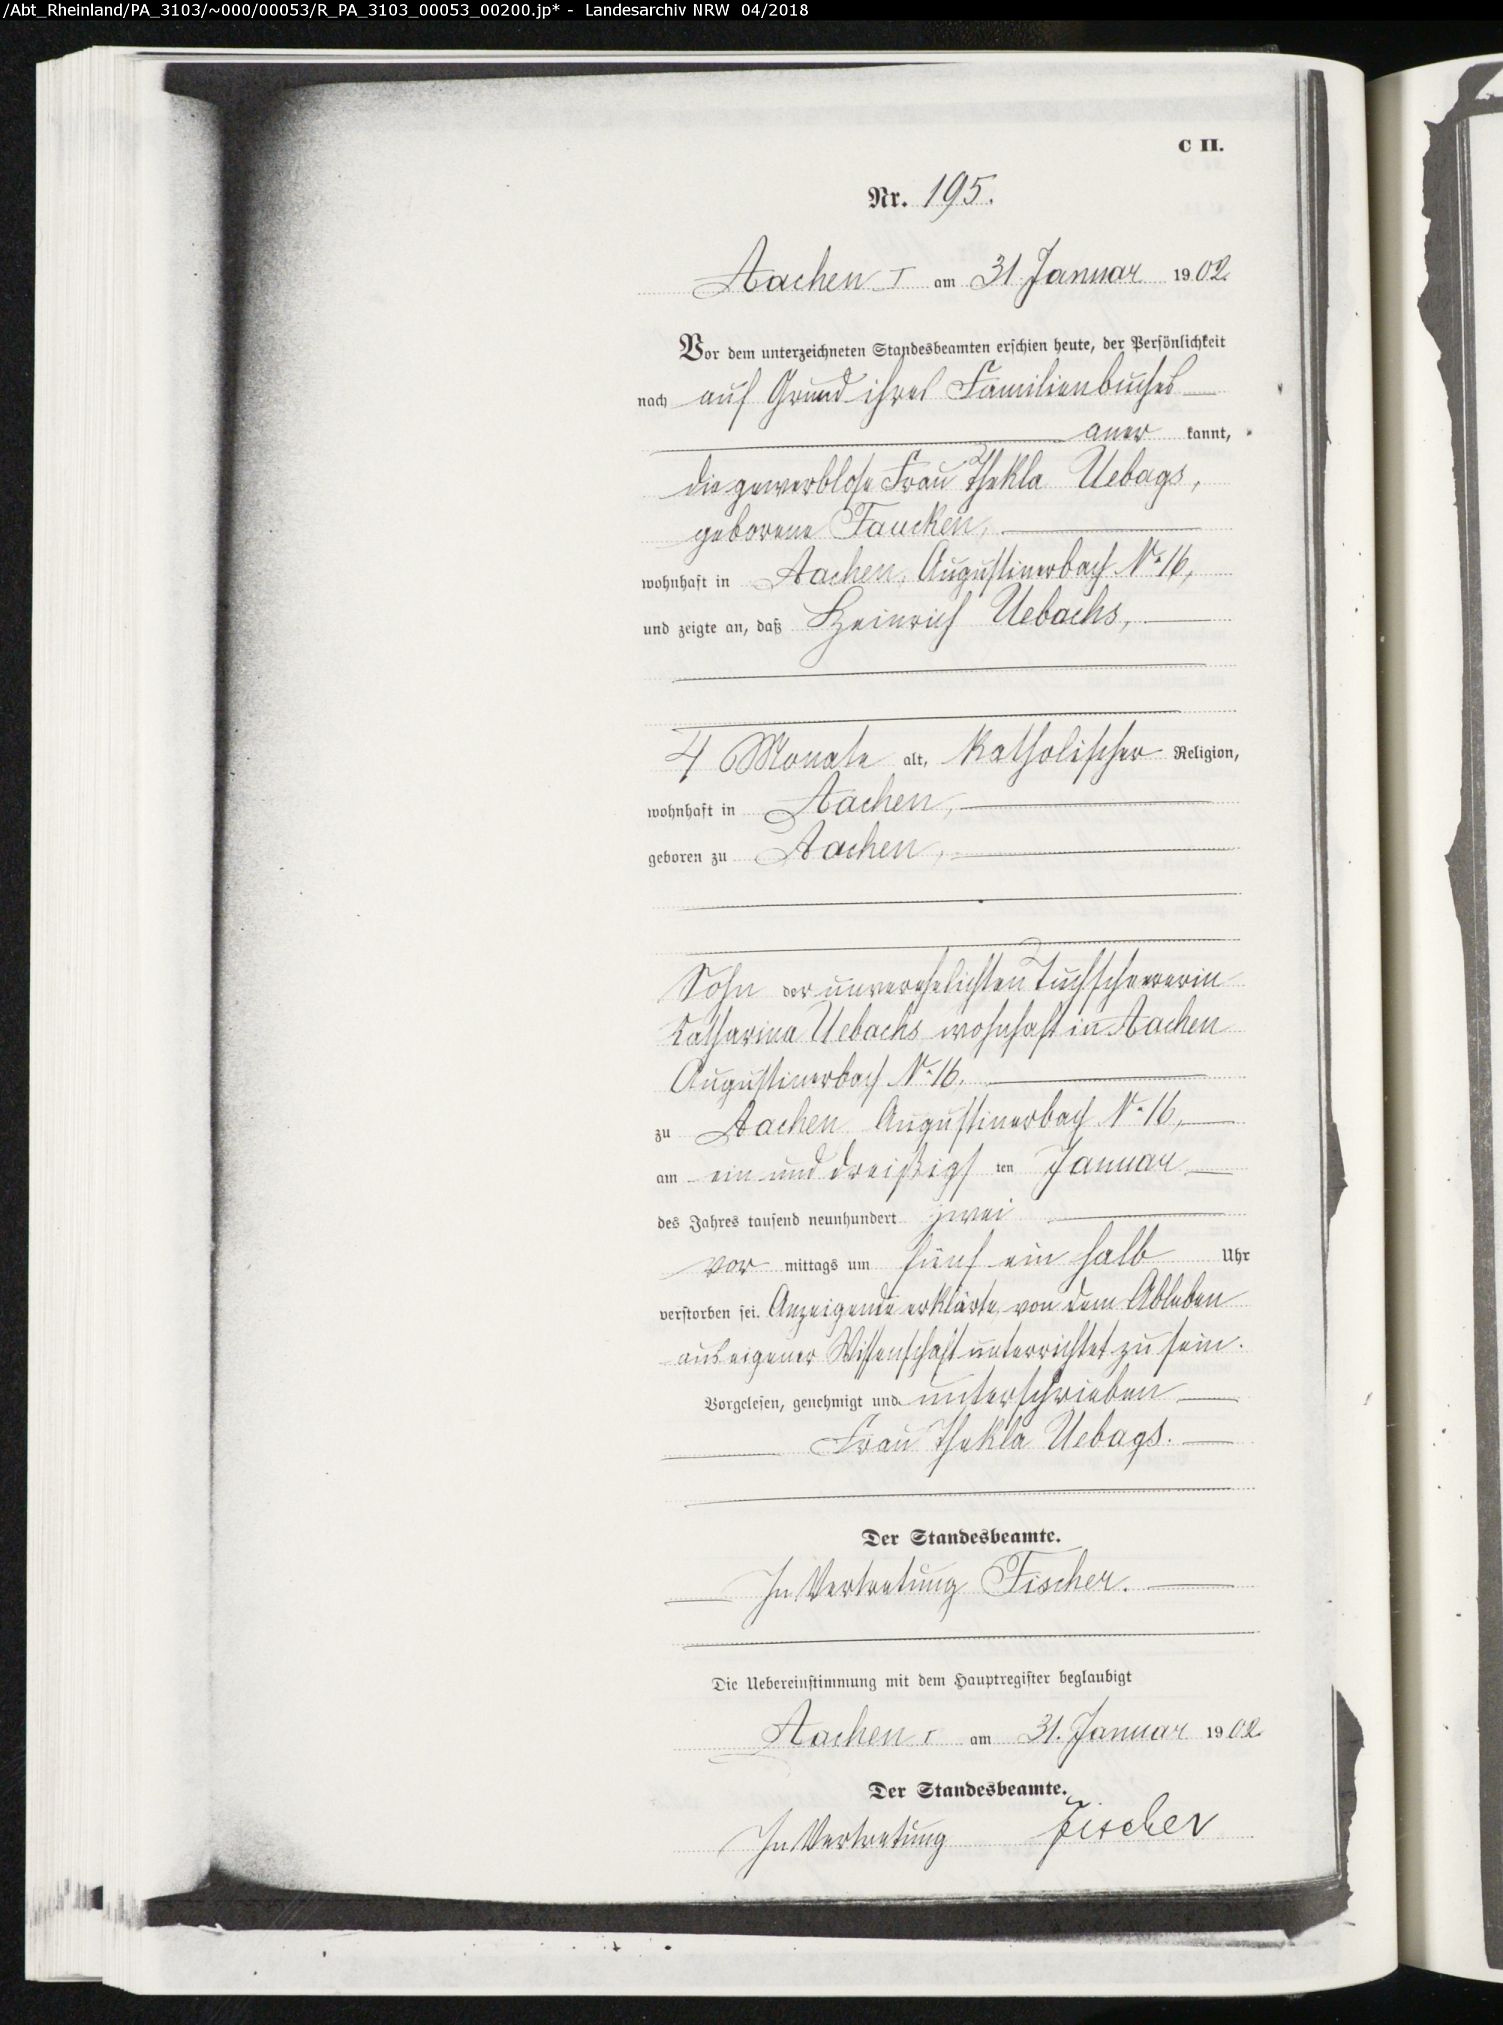 /Abt_Rheinland/PA_3103/~000/00053/R_PA_3103_00053_00200.jp* - Landesarchiv NRW 04/2018
C II.
Nr. 195.
Aachen I am 31. Januar 1902.
Vor dem unterzeichneten Standesbeamten erschien heute, der Persönlichkeit
nach auf Grund ihres Familienbuches
aner kannt,
die gewerblose Frau Thekla Uebags,
geborene Faucken,
wohnhaft in Aachen, Augustinerbach No 16,
und zeigte an, daß Heinrich Uebachs,
4 Monate alt, katholischer Religion,
wohnhaft in Aachen,
geboren zu Aachen,
Sohn der unverehelichten Tuchschererin
Catharina Uebachs wohnhaft in Aachen
Augustinerbach No 16.
zu Aachen Augustinerbach No 16,
am ein und dreißigs ten Januar
des Jahres tausend neunhundert zwei
vor mittags um fünf ein halb Uhr
verstorben sei. Anzeigende erklärte, von dem Ableben
aus eigener Wissenschaft unterrichtet zu sein.
Vorgelesen, genehmigt und unterschrieben
Frau Thekla Uebags.
Der Standesbeamte.
In Vertretung Fischer.
Die Uebereinstimmung mit dem Hauptregister beglaubigt
Aachen I am 31. Januar 1902
Der Standesbeamte.
In Vertretung Fischer